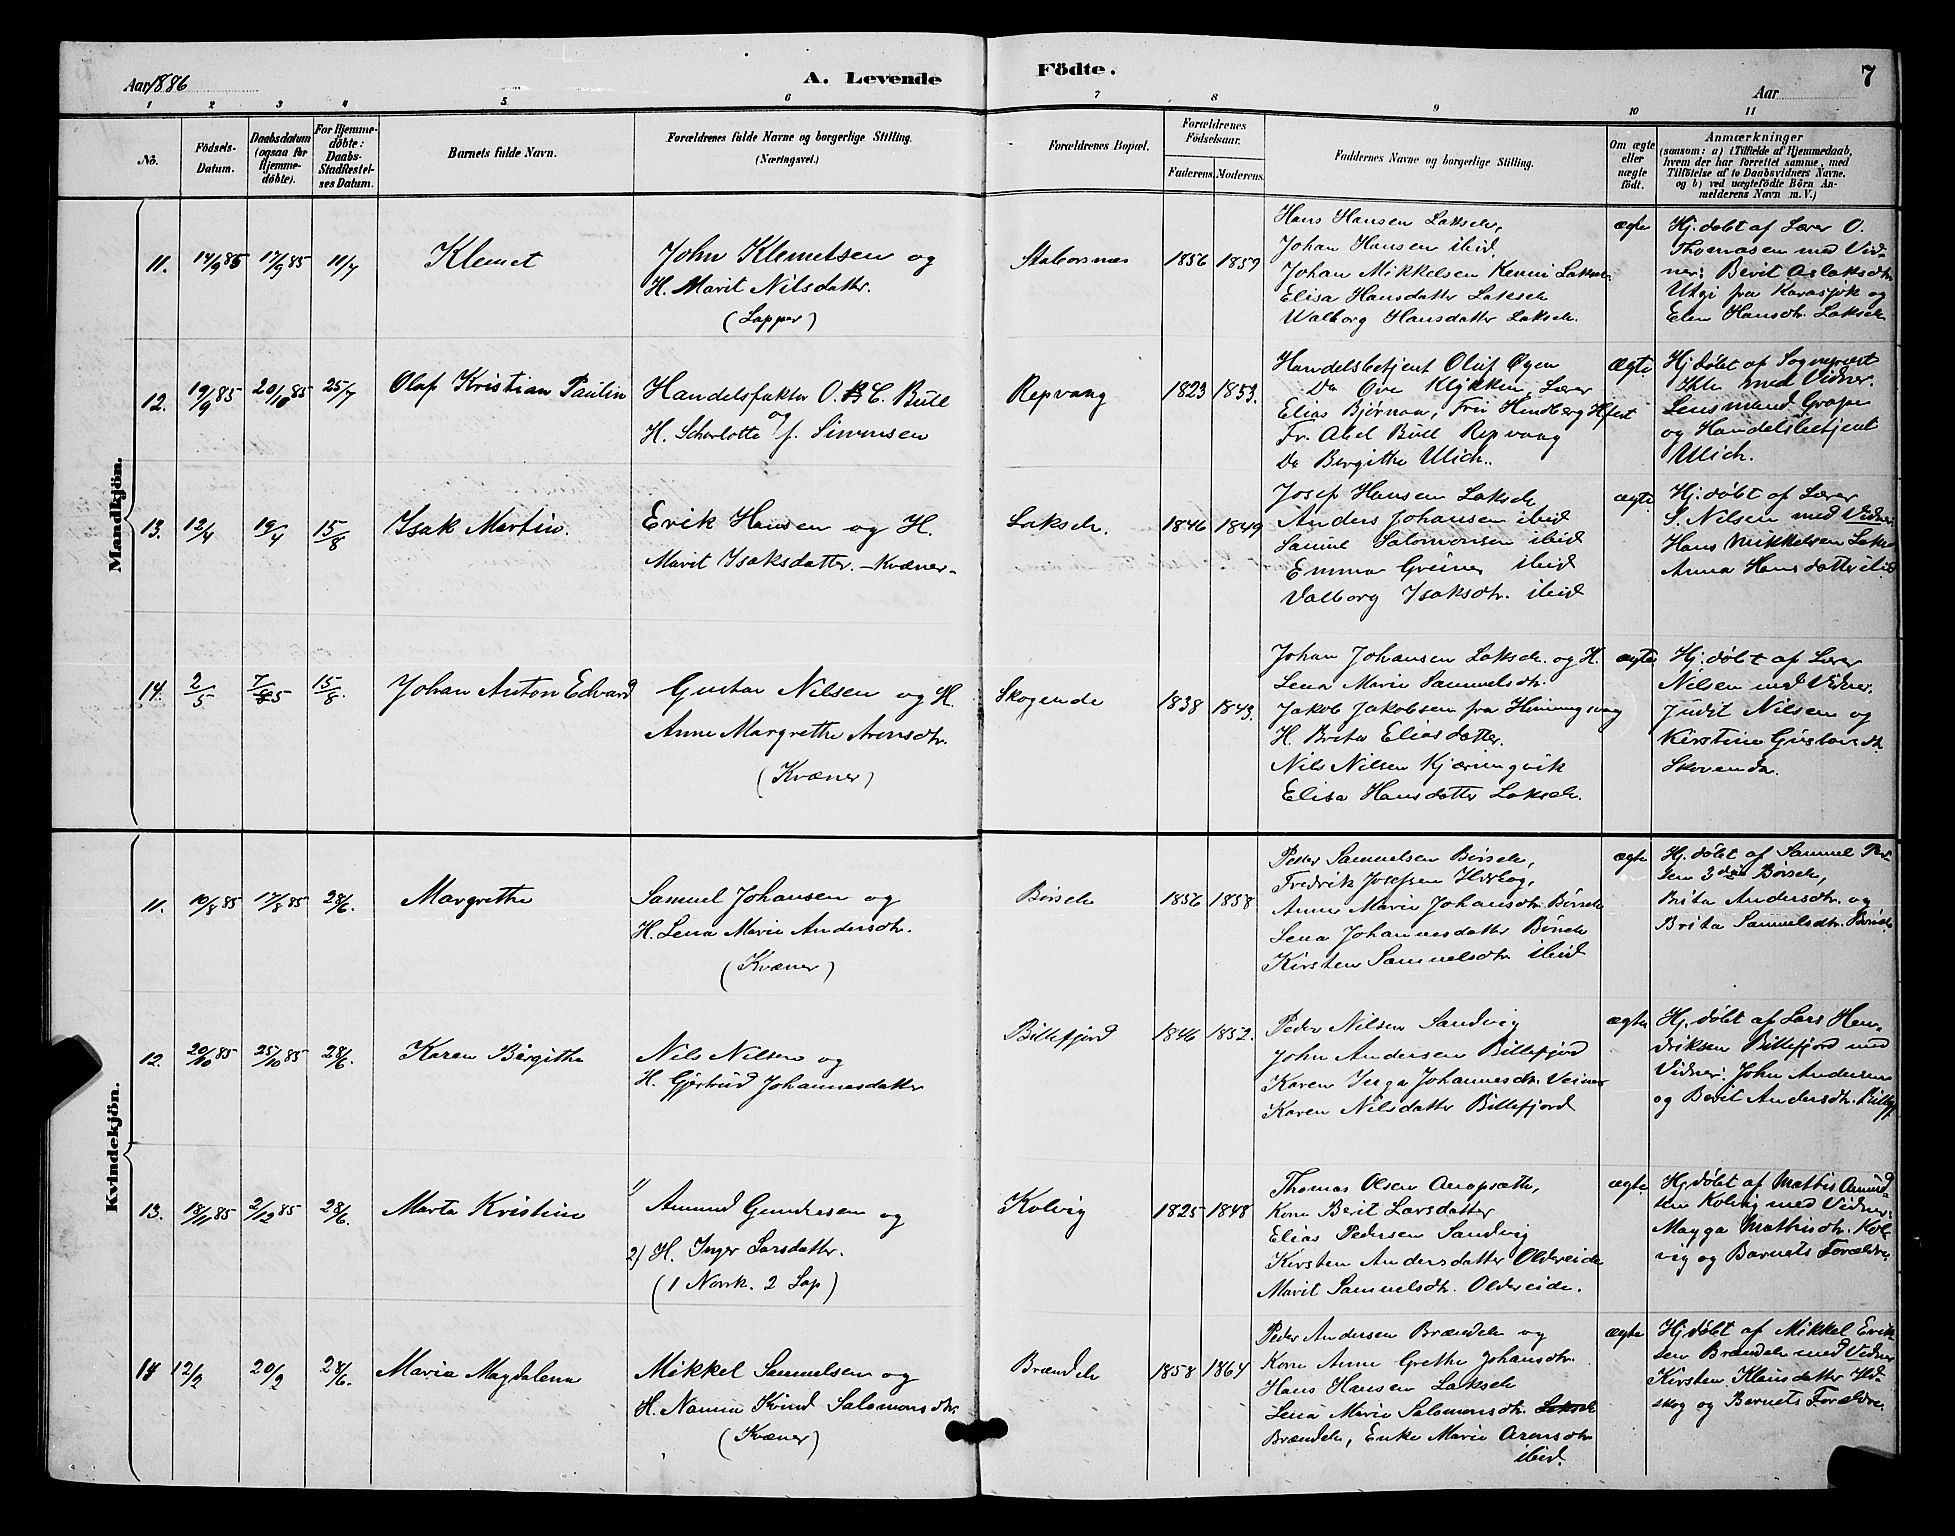 Aar 1886
A. Levende
Födte.
7
Aar
1 2 3 4 5 6 7 8 9 10 11
No.
Födsels-
Datum.
Daabsdatum
(ogsaa for
Hjemme-
döbte).
For Hjemme-
döbte:
Daabs-
Stadfæstel-
ses Datum.
Barnets fulde Navn.
Forældrenes fulde Navne og borgerlige Stilling.
(Næringsvei.)
Forældrenes Bopæl.
Forældrenes
Födselsaar.
Faderens. Moderens.
Faddernes Navne og borgerlige Stilling.
Om ægte
eller
uægte
født.
Anmærkninger
(saasom: a) i Tilfælde af Hjemmedaab,
hvem der har forrettet samme, med
Tilföielse af to Daabsvidners Navne,
og b) ved uægtefödte Börn An-
melderens Navn m. V.)
Mandkjön.
11. 14/9 85 17/9 85 11/7
Klemet
John Klemetsen og
H. Marit Nilsdatter.
(Lapper)
Stabursnes
1856 1859
Hans Hansen Lakselv,
Johan Hansen ibid.
Johan Mikkelsen Kenni Lakselv
Elisa Hansdatter Lakselv
Walborg Hansdatter Lakselv.
ægte
Hj. døbt af Lærer O.
Thomasen med Vid-
ner: Berit Aslaksdtr.
Utsi fra Karasjok og
Elen Hansdtr. Lakselv
12. 19/9 85 20/10 85 25/7
Olaf Kristian Paulin
Handelsfaktor O. B. C. Bull
og
H. Scharlotte f. Simonsen
Repvaag
1823 1853.
Handelsbetjent Oluf Øyen
Do Ove Klykken, Lærer
Elias Bjørnaa, Fru Hindberg Hfest
Fr. Abel Bull Repvaag
Do Bergithe Ulich..
ægte.
Hj. døbt af Sogneprest
Ihle med Vidner.
Lensmand Grape
og Handelsbetjent
Ulich.
13. 12/4 19/4 15/8
Isak Martin.
Erik Hansen og H.
Marit Isaksdatter. – Kvæner –
Lakselv.
1846 1849
Josef Hansen Lakselv
Anders Johansen ibid
Samul Salomonsen ibid
Emma Greiner ibid
Valborg Isaksdtr. ibid
ægte
Hj. døbt af Lærer
S. Nilsen med Vidner
Hans Mikkelsen Lakselv
Anna Hansdatter ibid
14. 2/5 7/5 15/8.
Johan Anton Edvard
Gustav Nilsen og H.
Anne Margrethe Arensdtr.
(Kvæner)
Skogende
1838 1843.
Johan Johansen Lakselv. og H.
Lena Marie Samuelsdtr.
Jakob Jakobsen fra Honningsvaag
H. Brita Eliasdatter.
Nils Nilsen Kjæringvik
Elisa Hansdatter Lakselv.
ægte
Hj. døbt af Lærer
Nilsen med Vidner.
Judit Nilsen og
Kirstine Gustavsdtr.
Kvindekjön.
11. 10/8 85 17/8 85 28/6.
Margrethe
Samuel Johansen og
H. Lena Marie Andersdtr.
(Kvæner)
Børselv
1856 1858
Peder Samuelsen Børselv,
Fredrik Josefsen
Anne Marie Johansdtr. Børselv
Lena Johannesdatter Børselv
Kirsten Samuelsdtr. ibid
ægte
Hj. døbt af Samuel Per-
sen Børselv,
Brita Andersdtr. og
Brita Samuelsdtr. Børselv
12. 20/10 85 25/10 85 28/6.
Karen Birgitha
Nils Nilsen og
H. Gjertrud Johannesdatter
Billefjord
1846 1852.
Peder Nilsen Sandvig
John Andersen Billefjord
Karen Inga Johannesdtr.
Karen Nilsdatter Billefjord
ægte
Hj. døbt af Lars Hen-
driksen Billefjord med
Vidner: John Andersen
og Berit Andersdtr. Billefj
13. 18/11 85 2/12 85 28/6.
Marta Kristine
1) Amund Gundersen og
2) H. Inger Larsdatter.
(1 Norsk. 2 Lap)
Kolvig
1825 1848
Thomas Olsen Anopsæth,
Kone Berit Larsdatter
Elias Pedersen Sandvig
Kirsten Andersdatter Oldereide
Marit Samuelsdtr. Oldereide.
ægte
Hj. døbt af Mathis Amund-
sen Kolvig med Vidner:
Magga Mathisdtr. Kol-
vig og Barnets Forældre.
14 12/2 20/2 28/6.
Maria Magdalena
Mikkel Samuelsen og
H. Nanna Kvind Salomonsdtr.
(Kvæner)
Brændelv
1858 1864
Peder Andersen Brændelv og
Kone Anne Grethe Johansdtr.
Hans Hansen Lakselv
Lena Marie Salomonsdtr. Lakselv
Brændelv, Enke Marie Arensdtr
ibid.
ægte
Hj. døbt af Mikkel Erik-
sen Brændelv med Vidner
Kirsten Klausdatter Ild-
skog og Barnets Forældre.